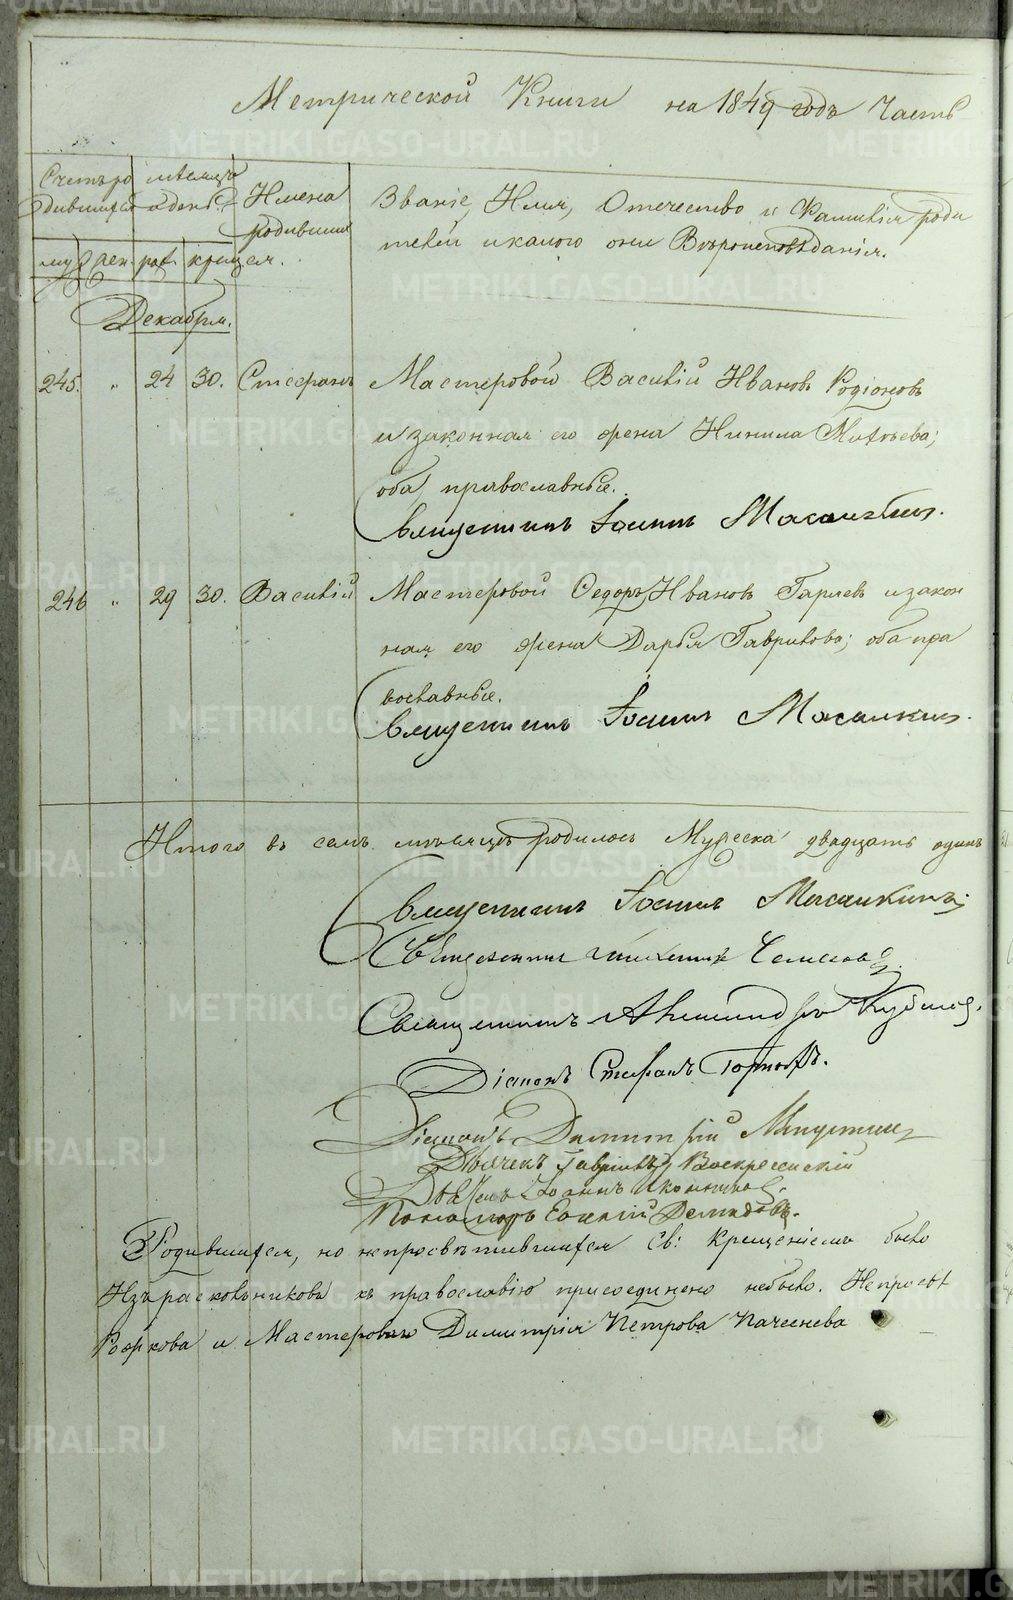 Метрической Книги на 1849 годъ Часть
Счетъ ро
дившихся
мѣсяцъ
и день.
Имена
родивших
Званіе, Имя, Отечество и Фамилія роди
телей и какого они Вѣроисповѣданія.
муж. жен. рож. крещен.
Декабря.
245. " 24 30. Стефанъ Мастеровой Василій Ивановъ Родіоновъ
и законная его жена Нинила Матвѣева;
оба православные.
Священникъ Іоаннъ Масалкинъ.
246 " 29 30. Василій Мастеровой Ѳедоръ Ивановъ Гаряевъ и закон
ная его жена Дарья Гаврилова; оба пра
вославные.
Священникъ Іоаннъ Масалкинъ.
Итого въ семъ мѣсяцѣ родилось Мужеска двадцать одинъ
Священникъ Іоаннъ Масалкинъ
Священникъ
Священникъ Александръ
Діаконъ Стефанъ
Діаконъ Димитрій
Дьячекъ Гавріилъ Воскресенскій
Дьячекъ Іоаннъ Иконниковъ.
Пономарь Евгеній Демидовъ.
Родившихся, но непросвѣтившихся Св: Крещеніемъ было
Изъ раскольниковъ къ православію присоединено небыло. Непросвѣ
Рожкова и Мастероваго Димитрія Петрова
METRIKI.GASO-URAL.RU